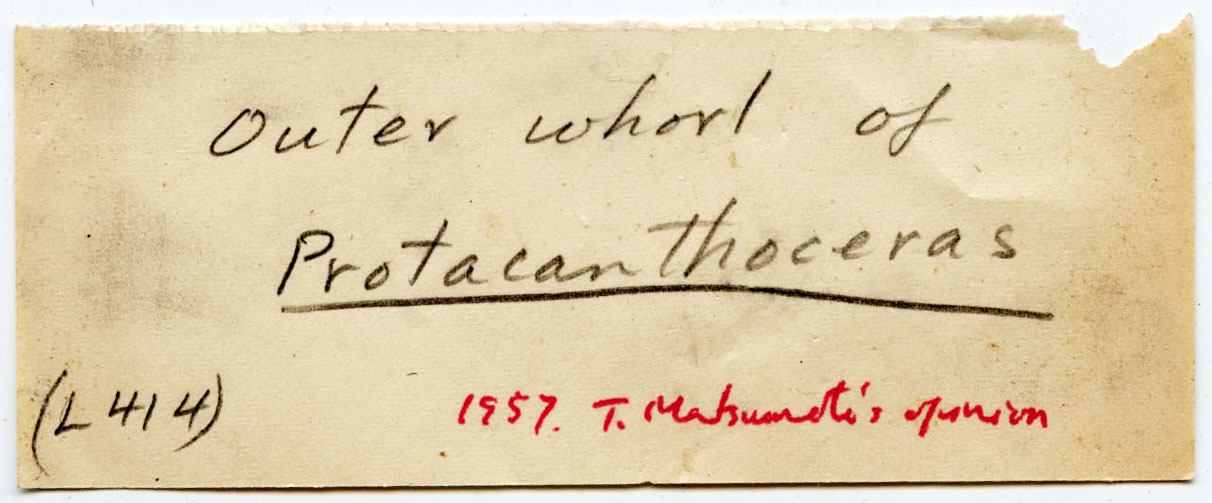 Outer whorl of
Protacanthoceras
(L 414)
1957. T. Matsumoto's opinion